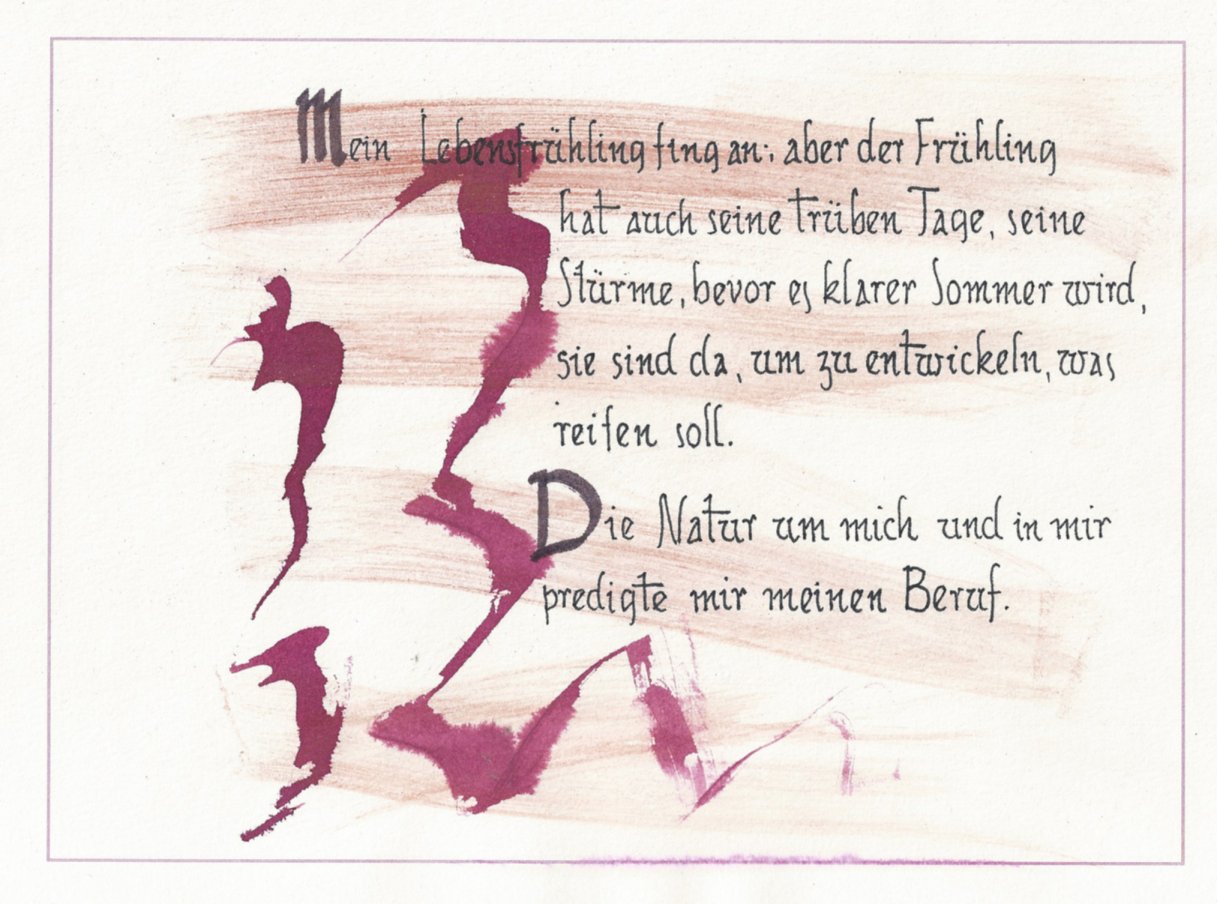 Mein Lebensfrühling fing an; aber der Frühling
hat auch seine trüben Tage, seine
Stürme, bevor es klarer Sommer wird,
sie sind da, um zu entwickeln, was
reifen soll.
Die Natur um mich und in mir
predigte mir meinen Beruf.